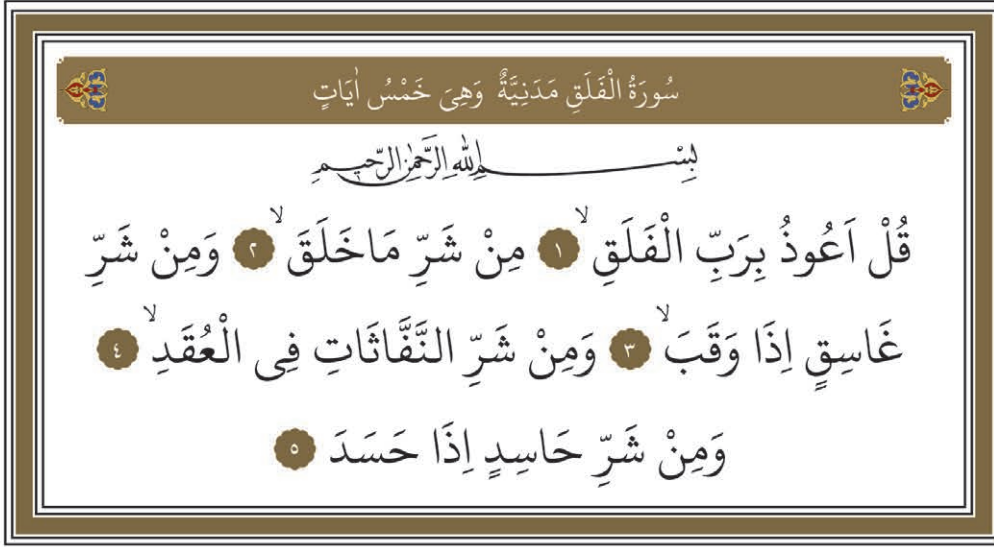 سُورَةُ الْفَلَقِ مَدَنِيَّةٌ وَهِىَ خَمْسُ اٰيَاتٍ
بِسْمِ اللهِ الرَّحْمٰنِ الرَّحِيمِ
قُلْ اَعُوذُ بِرَبِّ الْفَلَقِۙ ١ مِنْ شَرِّ مَاخَلَقَۙ ٢ وَمِنْ شَرِّ
غَاسِقٍ اِذَا وَقَبَۙ ٣ وَمِنْ شَرِّ النَّفَّاثَاتِ فِى الْعُقَدِۙ ٤
وَمِنْ شَرِّ حَاسِدٍ اِذَا حَسَدَ ٥